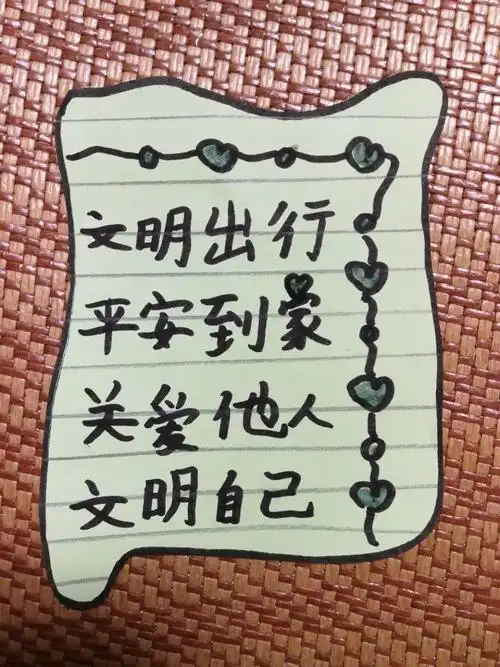 文明出行
平安到家
关爱他人
文明自己